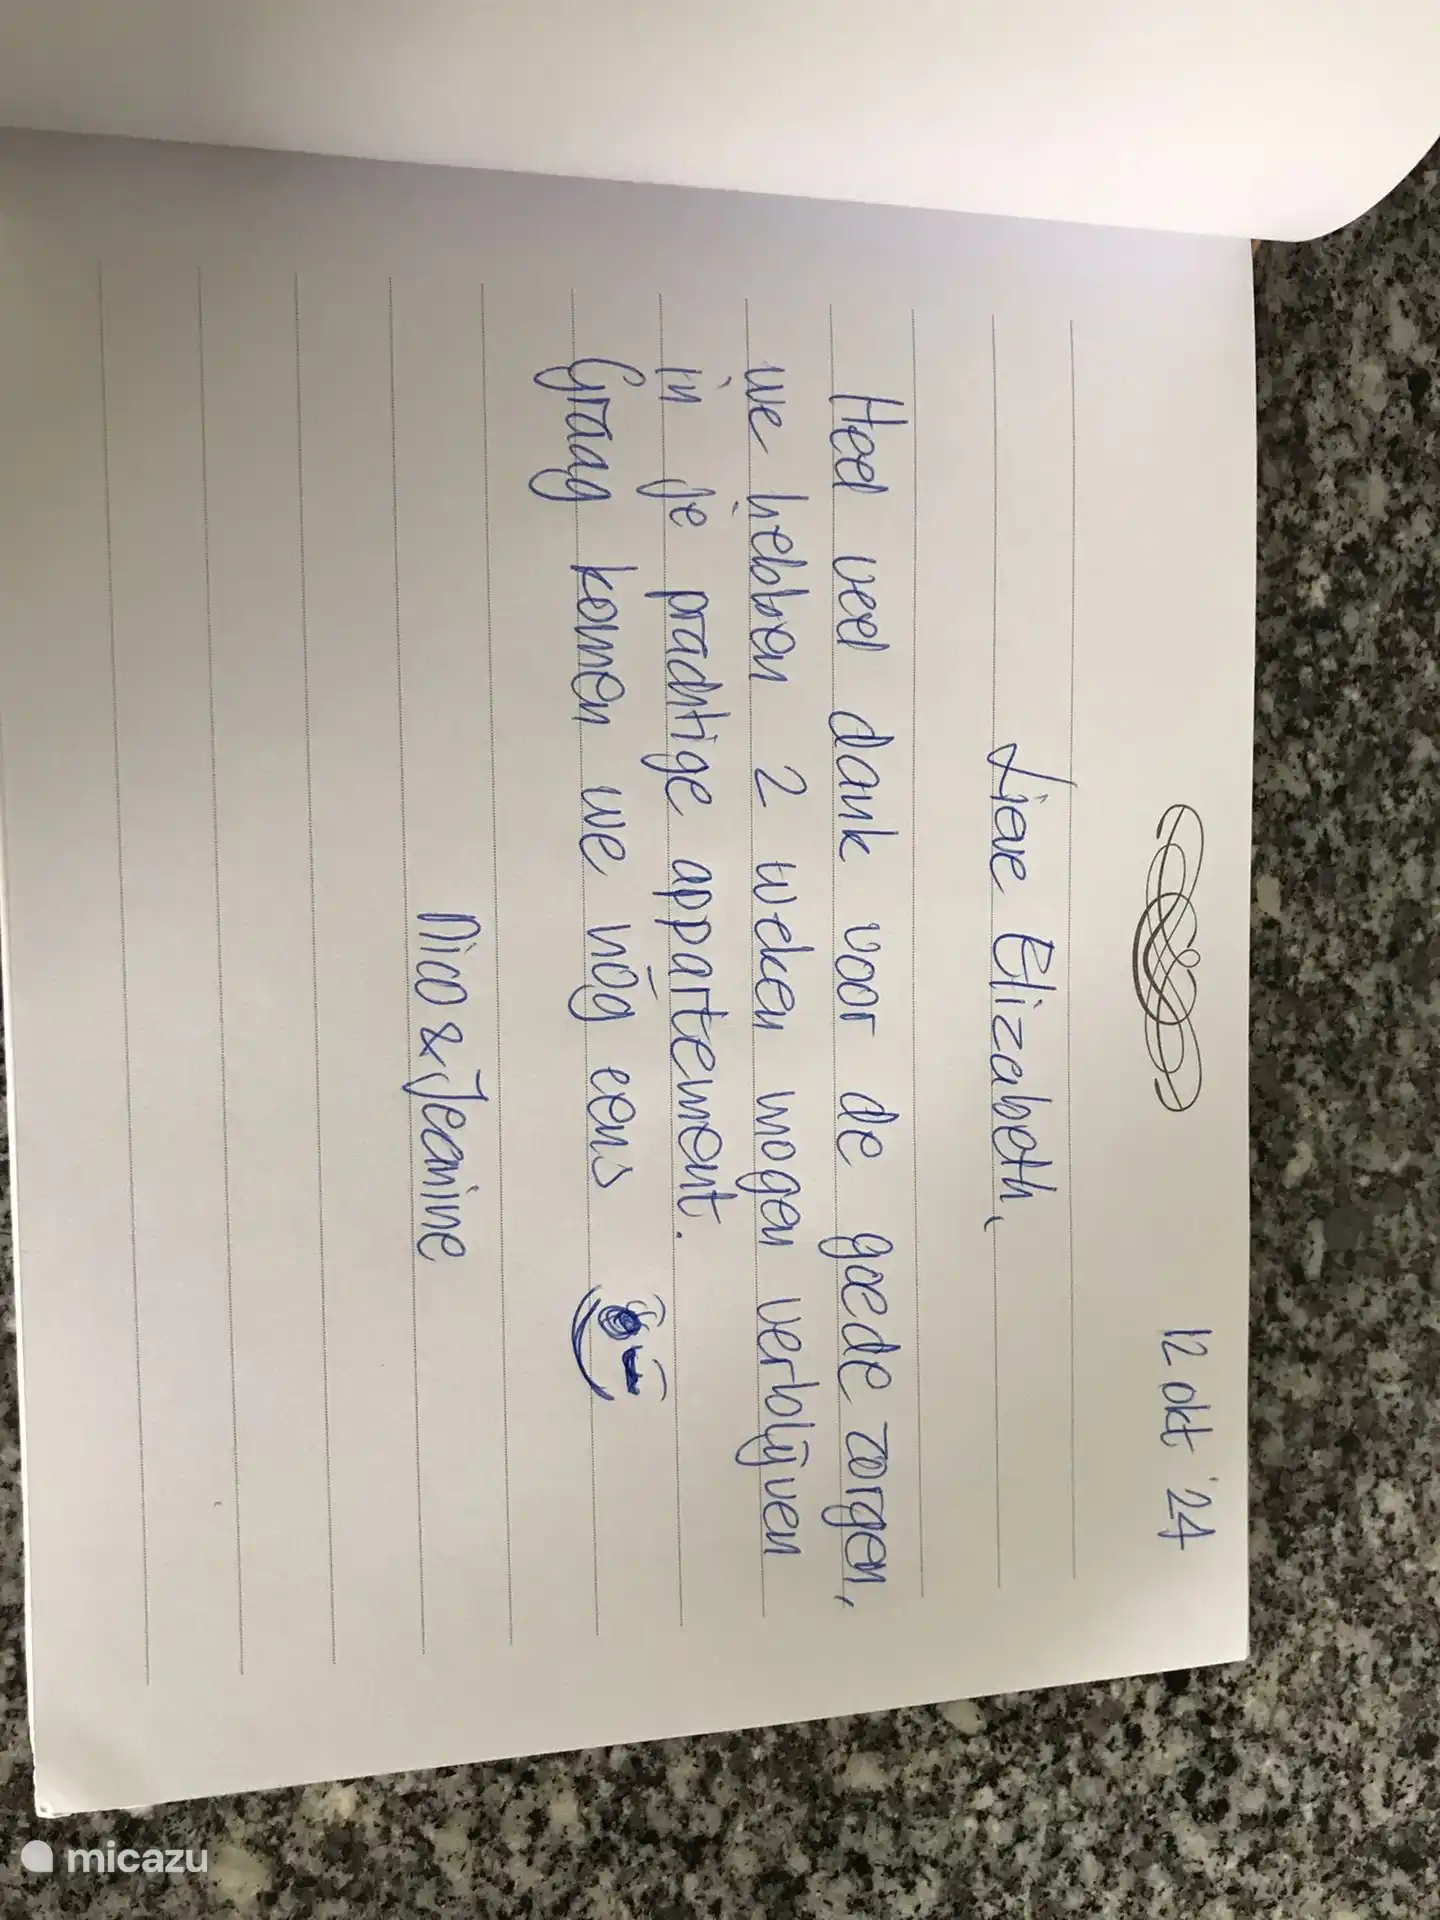 12 okt '24
Lieve Elizabeth,
Heel veel dank voor de goede zorgen,
we hebben 2 weken mogen verblijven
in je prachtige appartement.
Graag komen we nog eens
Nico & Jeanine
micazu